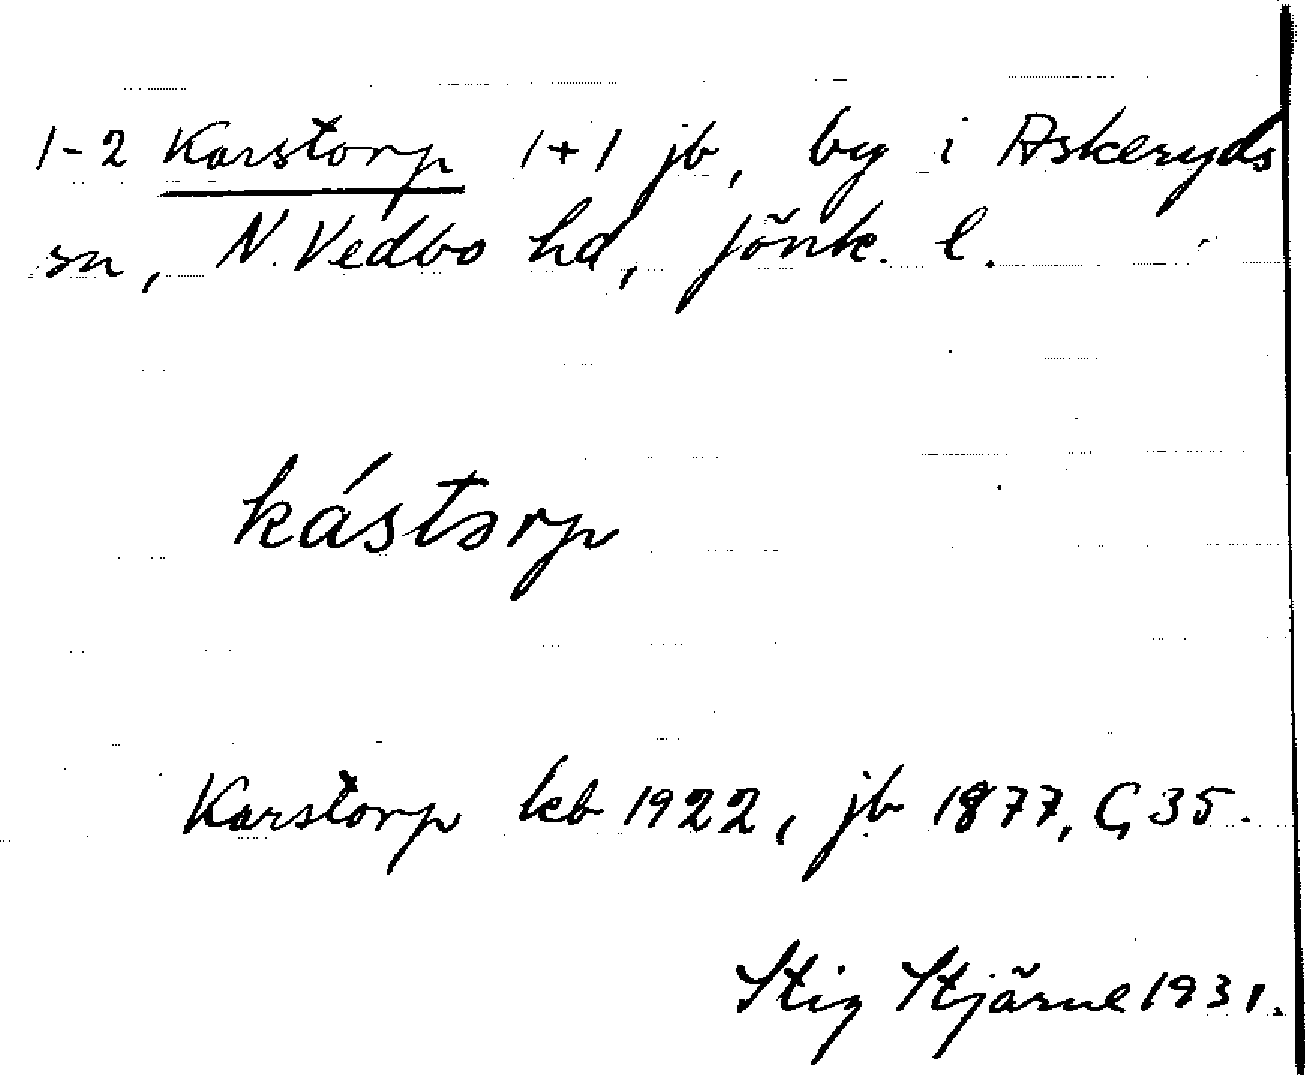 1-2 Karstorp 1+1 jb, by i Askeryds
sn, N. Vedbo hd, Jönk. l.
kástorp
Karstorp kb 1922, jb 1877, G 35.
Stig Stjärne 1931.